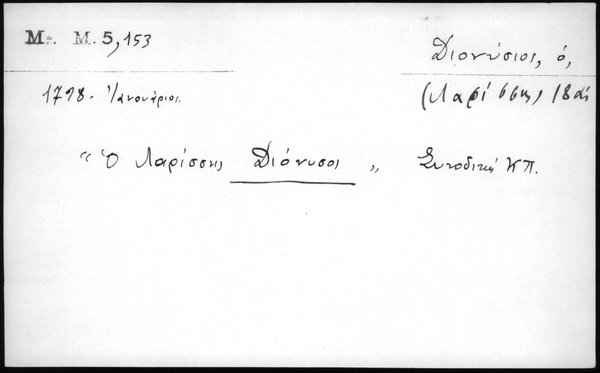 Μ. Μ. 5,153
Διονύσιος, ὁ,
1798. Ἰανουάριος.
(Λαρίσσης) 18 αἰ
"Ὁ Λαρίσσης Διόνυσος" Συνοδική ΚΠ.